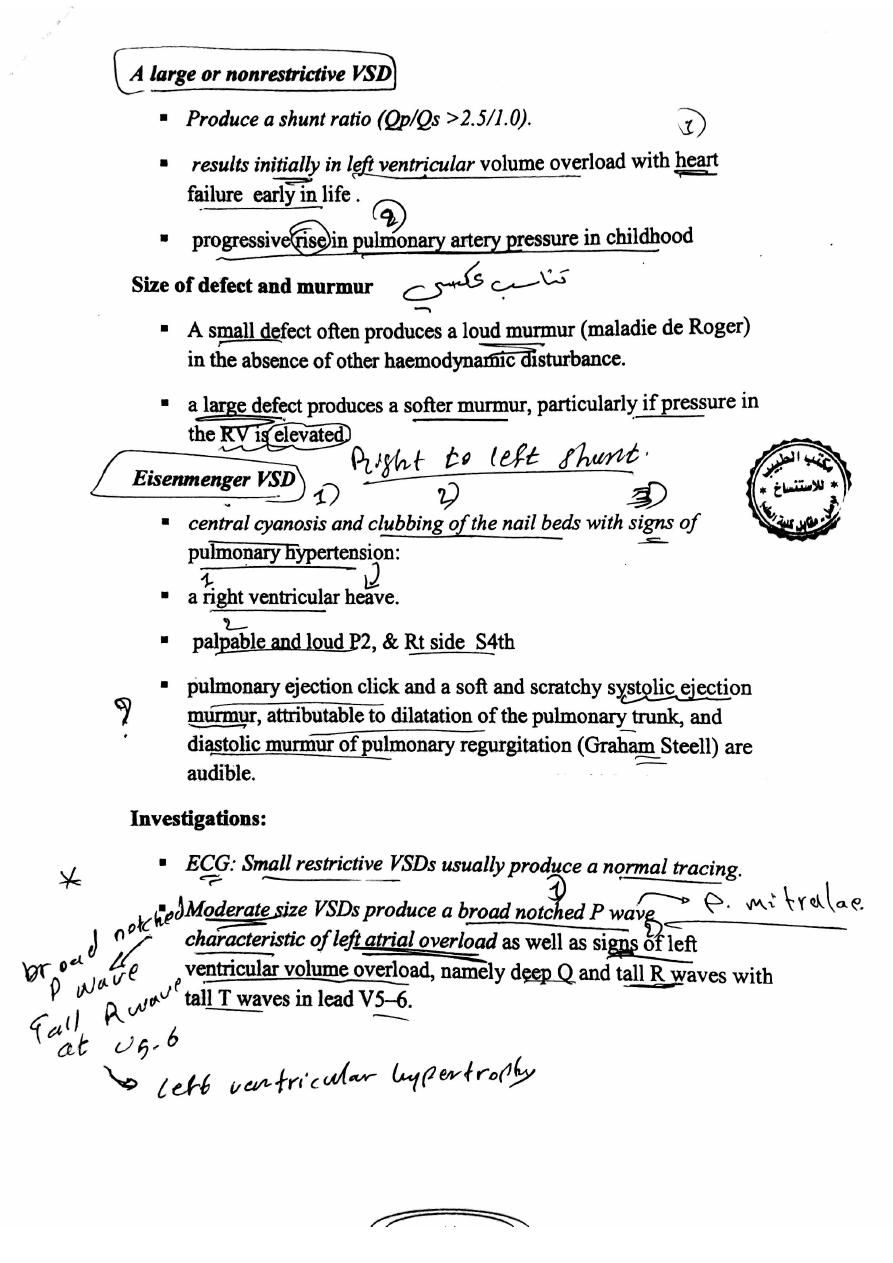 A large or nonrestrictive VSD
▪ Produce a shunt ratio (Qp/Qs >2.5/1.0).
1
▪ results initially in left ventricular volume overload with heart
failure early in life .
2
▪ progressive rise in pulmonary artery pressure in childhood
Size of defect and murmur تناسب عكسي
▪ A small defect often produces a loud murmur (maladie de Roger)
in the absence of other haemodynamic disturbance.
▪ a large defect produces a softer murmur, particularly if pressure in
the RV is elevated
Right to left shunt.
Eisenmenger VSD
1) 2) 3)
مكتب الطبيب
* للاستنساخ *
▪ central cyanosis and clubbing of the nail beds with signs of
pulmonary hypertension:
1
▪ a right ventricular heave.
2
▪ palpable and loud P2, & Rt side S4th
▪ pulmonary ejection click and a soft and scratchy systolic ejection
? murmur, attributable to dilatation of the pulmonary trunk, and
diastolic murmur of pulmonary regurgitation (Graham Steell) are
audible.
Investigations:
▪ ECG: Small restrictive VSDs usually produce a normal tracing.
*
1
▪ Moderate size VSDs produce a broad notched P wave → P. mitralae.
2
characteristic of left atrial overload as well as signs of left
ventricular volume overload, namely deep Q and tall R waves with
tall T waves in lead V5–6.
broad notched
P wave
Tall R wave
at V5-6
→ left ventricular hypertrophy